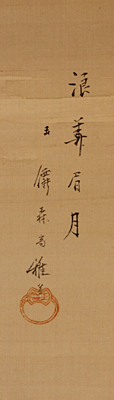 浪華眉月
玉僊森高雅筆